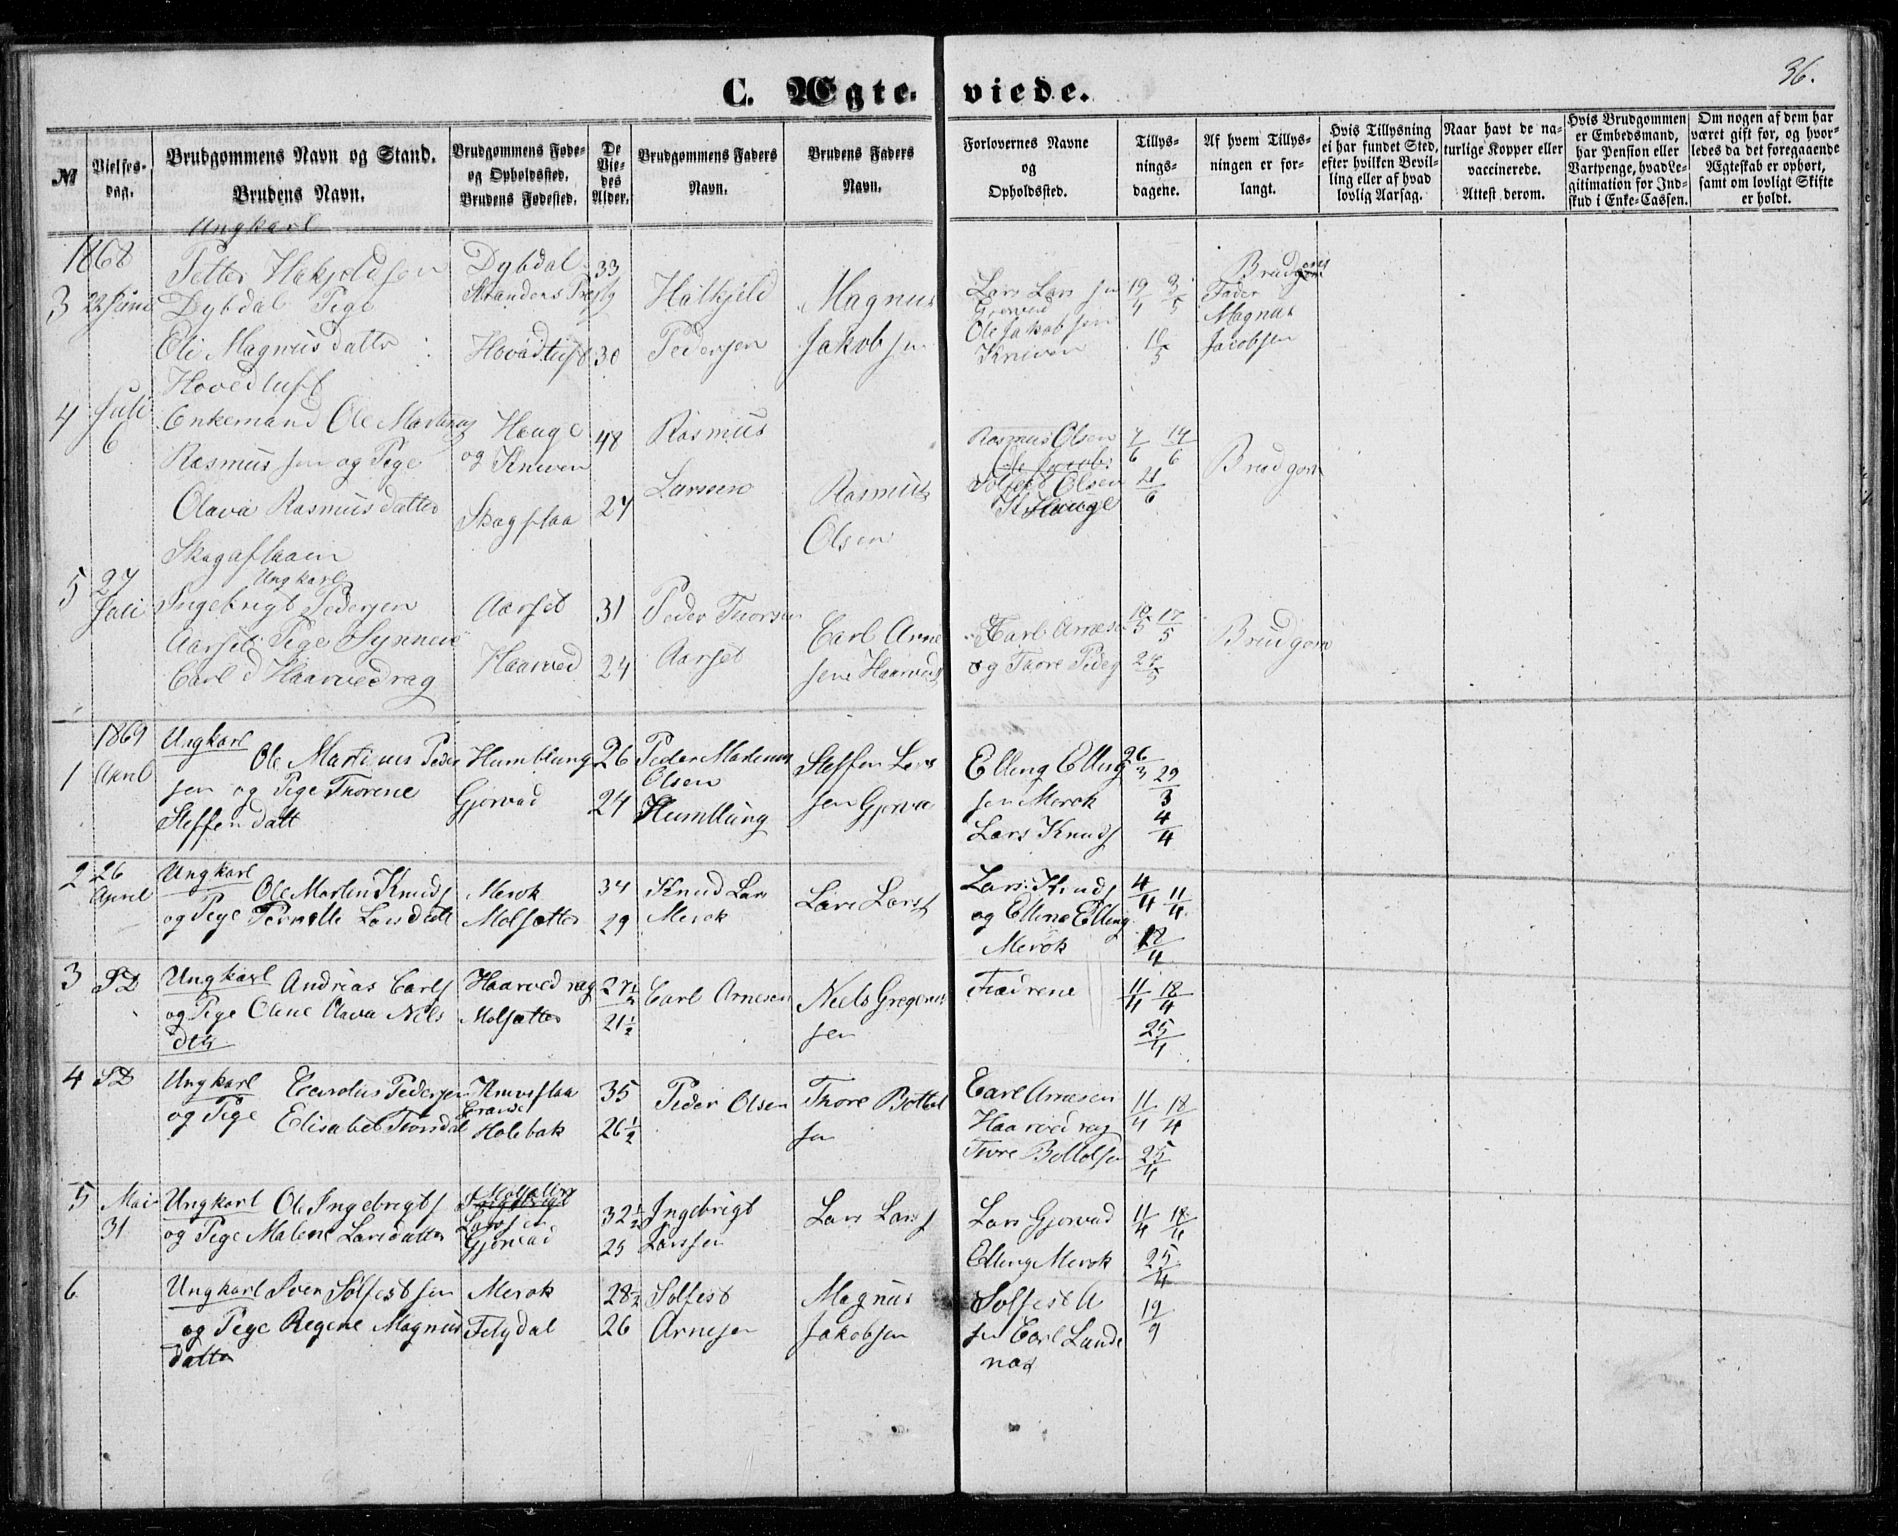 36.
C. Ægte-viede.
№
Vielses-
dag.
Brudgommens Navn og Stand.
Brudens Navn.
Brudgommens Føde-
og Opholdssted.
Brudens Fødested.
De
Vie-
des
Alder.
Brudgommens Faders
Navn.
Brudens Faders
Navn.
Forlovernes Navne
og
Opholdssted.
Tillys-
nings-
dagene.
Af hvem Tillys-
ningen er for-
langt.
Hvis Tillysning
ei har fundet Sted,
efter hvilken Bevil-
ling eller af hvad
lovlig Aarsag.
Naar havt de na-
turlige Kopper eller
vaccinerede.
Attest derom.
Hvis Brudgommen
er Embedsmand,
har Pension eller
Vartpenge, hvad Le-
gitimation for Ind-
skud i Enke-Cassen.
Om nogen af dem har
været gift før, og hvor-
ledes da det foregaaende
Ægteskab er ophørt,
samt om lovligt Skifte
er holdt.
1868
3
Ungkarl
Petter
Dybdal Pige
Eli Magnusdatter
Dybdal
33
30
Pedersen
Magnus
Jakobsen
Lars Larssen
Ole Jakobsen
Kniven
19/4 3/5
10/5
Brudgoms
Fader
Magnus
Jacobsen
4
Juli
6
Enkemand Ole Martinus
Rasmussen og Pige
Olava Rasmusdatter
Skagaflaaen
Houge
og Kniven
Skagflaa
48
27
Rasmus
Larsen
Rasmus
Olsen
Rasmus Olsen
Solfest Olsen
Houge
7/6 14/6
21/6
Brudgom
5
27
Juli
Ungkarl
Ingebrigt Pedersen
Aarset Pige Synneve
Carl d Haarvedrag
Aarset
Haarved
31
24
Peder Thorsen
Aarset
Carl Arne
sen Haarved
Carl Arnesen
og Thore Peders
10/5 17/5
24/5
Brudgom
1869
1
April
Ungkarl Ole Martinus Peder
sen og Pige Thorene
Steffendatt
Humblung
Gjørvad
26
24
Peder Martinus
Olsen
Humblung
Steffen Lars
sen Gjørva
Elling Elling
sen Merok
Lars Knuds
26/3 29/3
4/4
2
26
April
Ungkarl Ole Martin Knuds
og Pige Pernille Larsdatt
Merok
Molsætter
34
29
Knud Lars
Merok
Lars Lars
Lars Knuds
og Elling Elling
Merok
4/4 11/4
18/4
3
SD
Ungkarl Andrias Carls
og Pige Oline Olava Nils
dtr
Haarvedrag
Molsætter
27½
21½
Carl Arnesen
Niels Gregorius
sen
Fædrene
11/4 18/4
25/4
4
SD
Ungkarl Carolus Pedersen
og Pige Elisabet Thorsdat
Knivsflaa
Holebak
35
26½
Peder Olsen
Thore Bottol
sen
Carl Arnesen
Haarvedrag
Tore Bottolsen
11/4 18/4
25/4
5
Mai
31
Ungkarl Ole Ingebrigts
og Pige Malene Larsdatter
Molsætter
Gjørvad
32½
25
Ingebrigt
Larssen
Lars Lars
Lars Gjørvad
Elling Merok
11/4 18/4
25/4
6
Ungkarl Sven Solfestsen
og Pige Regine Magnus
datter
Merok
28½
26
Solfest
Arnesen
Magnus
Jakobsen
Solfest A
sen Carl Lunde
næs
19/9